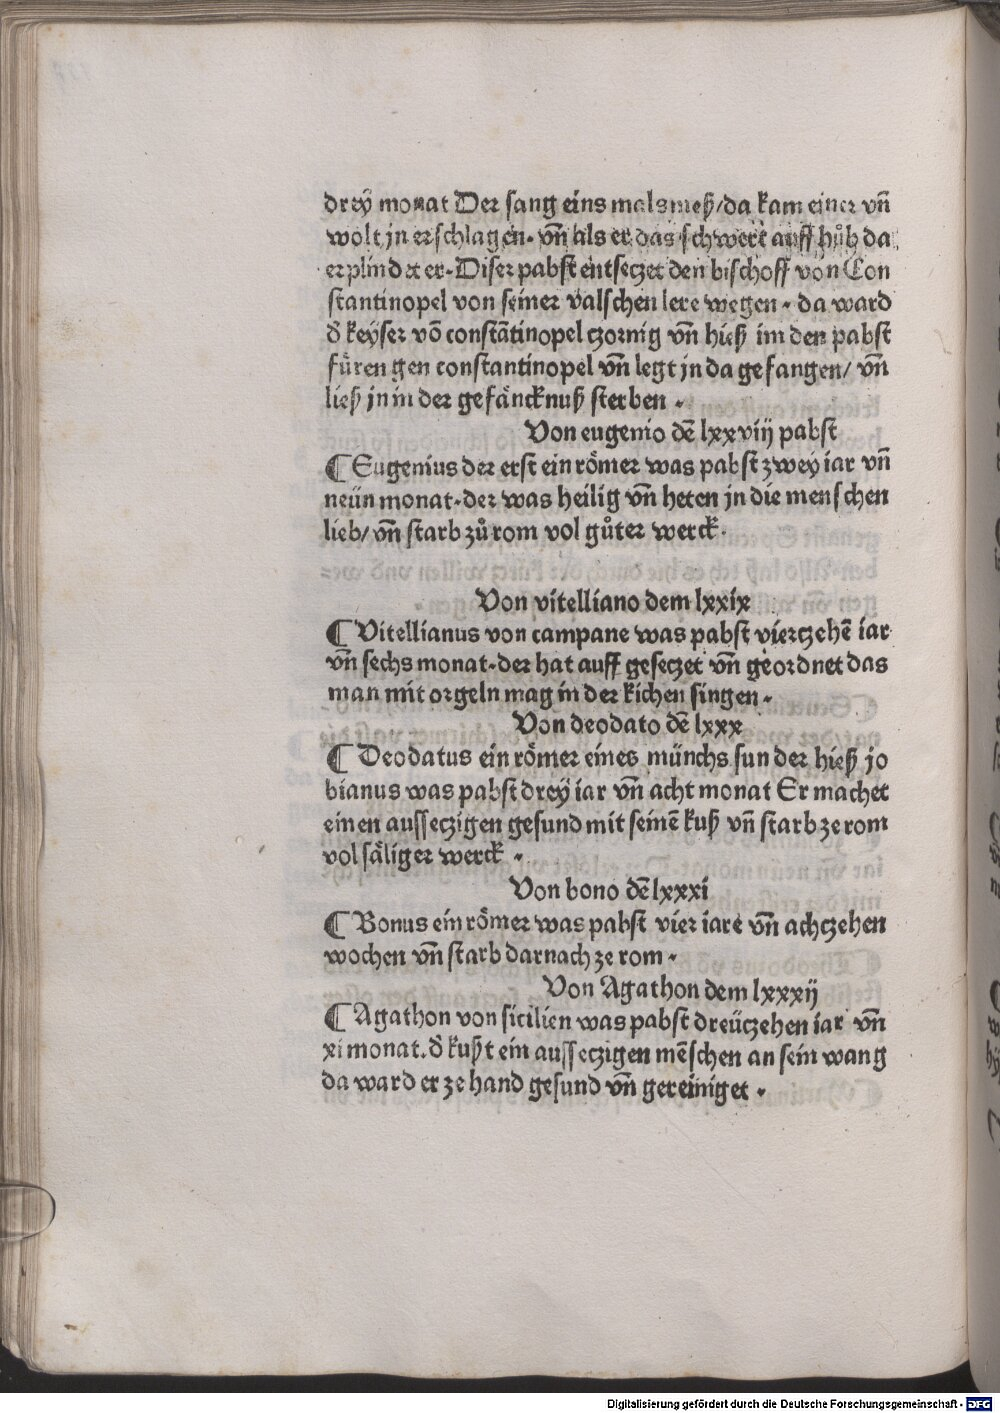 dreÿ monat Der sang eins mals meß/da kam einer vñ
wolt jn erschlagen. vñ als er das schwert auff hůb da
erplindet er. Diser pabst entseczet den bischoff von Con
stantinopel von seiner valschen lere wegen. da ward
ð keÿser võ constãtinopel czornig vñ hieß im den pabst
füren gen constantinopel vñ legt jn da gefangen/ vñ
ließ jn in der gefäncknuß sterben.
Von eugenio dẽ lxxviij pabst
¶ Eugenius der erst ein römer was pabst zweÿ iar vñ
neün monat. der was heilig vñ heten jn die menschen
lieb/ vñ starb zů rom vol gůter werck.
Von vitelliano dem lxxix
¶ Vitellianus von campane was pabst vierczehẽ iar
vñ sechs monat. der hat auff geseczet vñ geordnet das
man mit orgeln mag in der kichen singen.
Von deodato dẽ lxxx
¶ Deodatus ein römer eines münchs sun der hieß jo
bianus was pabst dreÿ iar vñ acht monat Er machet
einen ausseczigen gesund mit seinẽ kuß vñ starb ze rom
vol säliger werck.
Von bono dẽ lxxxi
¶ Bonus ein römer was pabst vier iare vñ achczehen
wochen vñ starb darnach ze rom.
Von Agathon dem lxxxij
¶ Agathon von sicilien was pabst dreüczehen iar vñ
xi monat. ð kußt ein ausseczigen mẽschen an sein wang
da ward er ze hand gesund vñ gereiniget.
Digitalisierung gefördert durch die Deutsche Forschungsgemeinschaft - DFG